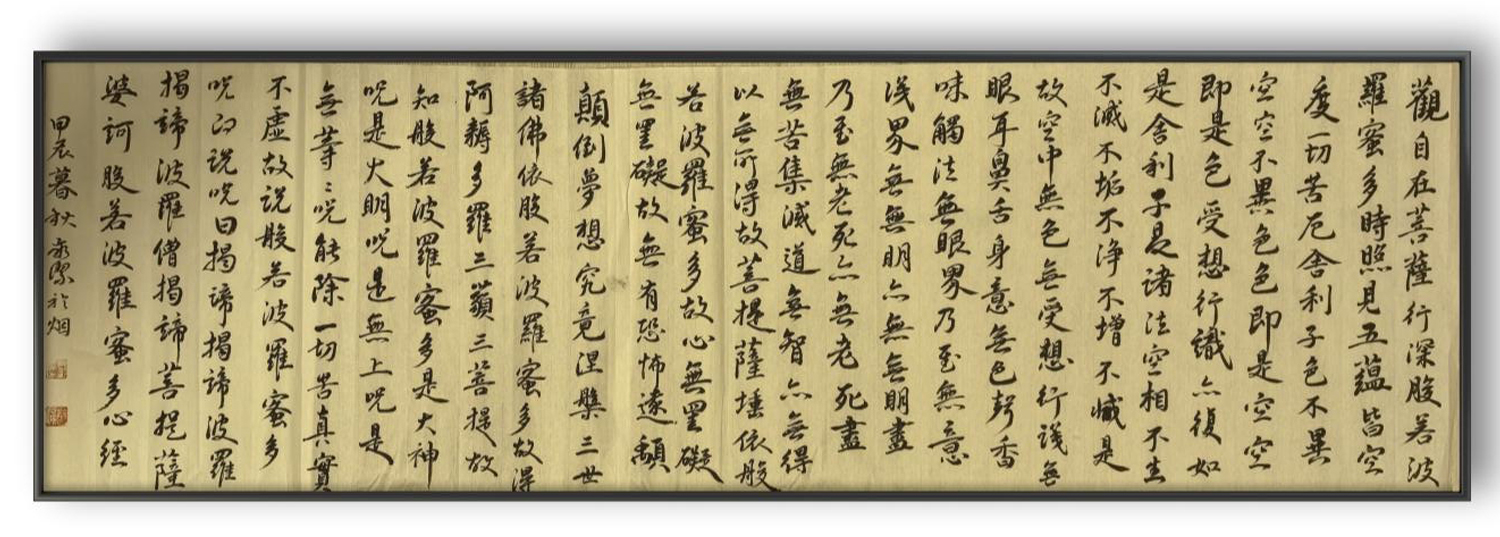 觀自在菩薩行深般若波
羅蜜多時照見五蘊皆空
度一切苦厄舍利子色不異
空空不異色色即是空空
即是色受想行識亦復如
是舍利子是諸法空相不生
不滅不垢不淨不增不減是
故空中無色無受想行識無
眼耳鼻舌身意無色聲香
味觸法無眼界乃至無意
識界無無明亦無無明盡
乃至無老死亦無老死盡
無苦集滅道無智亦無得
以無所得故菩提薩埵依般
若波羅蜜多故心無罣礙
無罣礙故無有恐怖遠顛
顛倒夢想究竟涅槃三世
諸佛依般若波羅蜜多故得
阿耨多羅三藐三菩提故
知般若波羅蜜多是大神
咒是大明咒是無上咒是
無等〻咒能除一切苦真實
不虛故説般若波羅蜜多
咒即説咒曰揭諦揭諦波羅
揭諦波羅僧揭諦菩提薩
婆訶般若波羅蜜多心經
甲辰暮秋 於烟